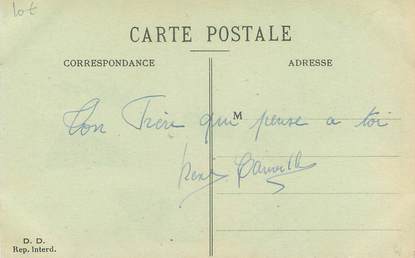 lot
CARTE POSTALE
CORRESPONDANCE
ADRESSE
M
Ton Frère qui pense a toi
D. D.
Rep. Interd.